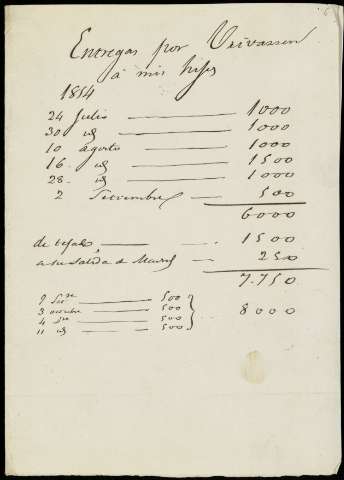 Entregas por
á mis hijos
1854
24 Julio 1000
30 id 1000
10 agosto 1000
16 id 1500
28 id 1000
2 Setiembre 500
6000
1500
a su salida d 250
7.750
500
3 octubre 500
4 500
11 id 500
8000